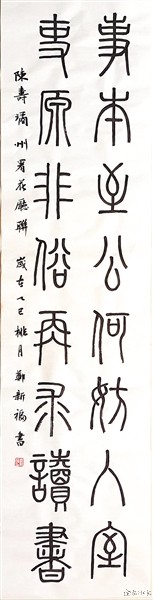 事本至公何妨入室
吏原非俗再求讀書
陳壽州署花廳聯 歲在乙巳桃月 鄭新福書